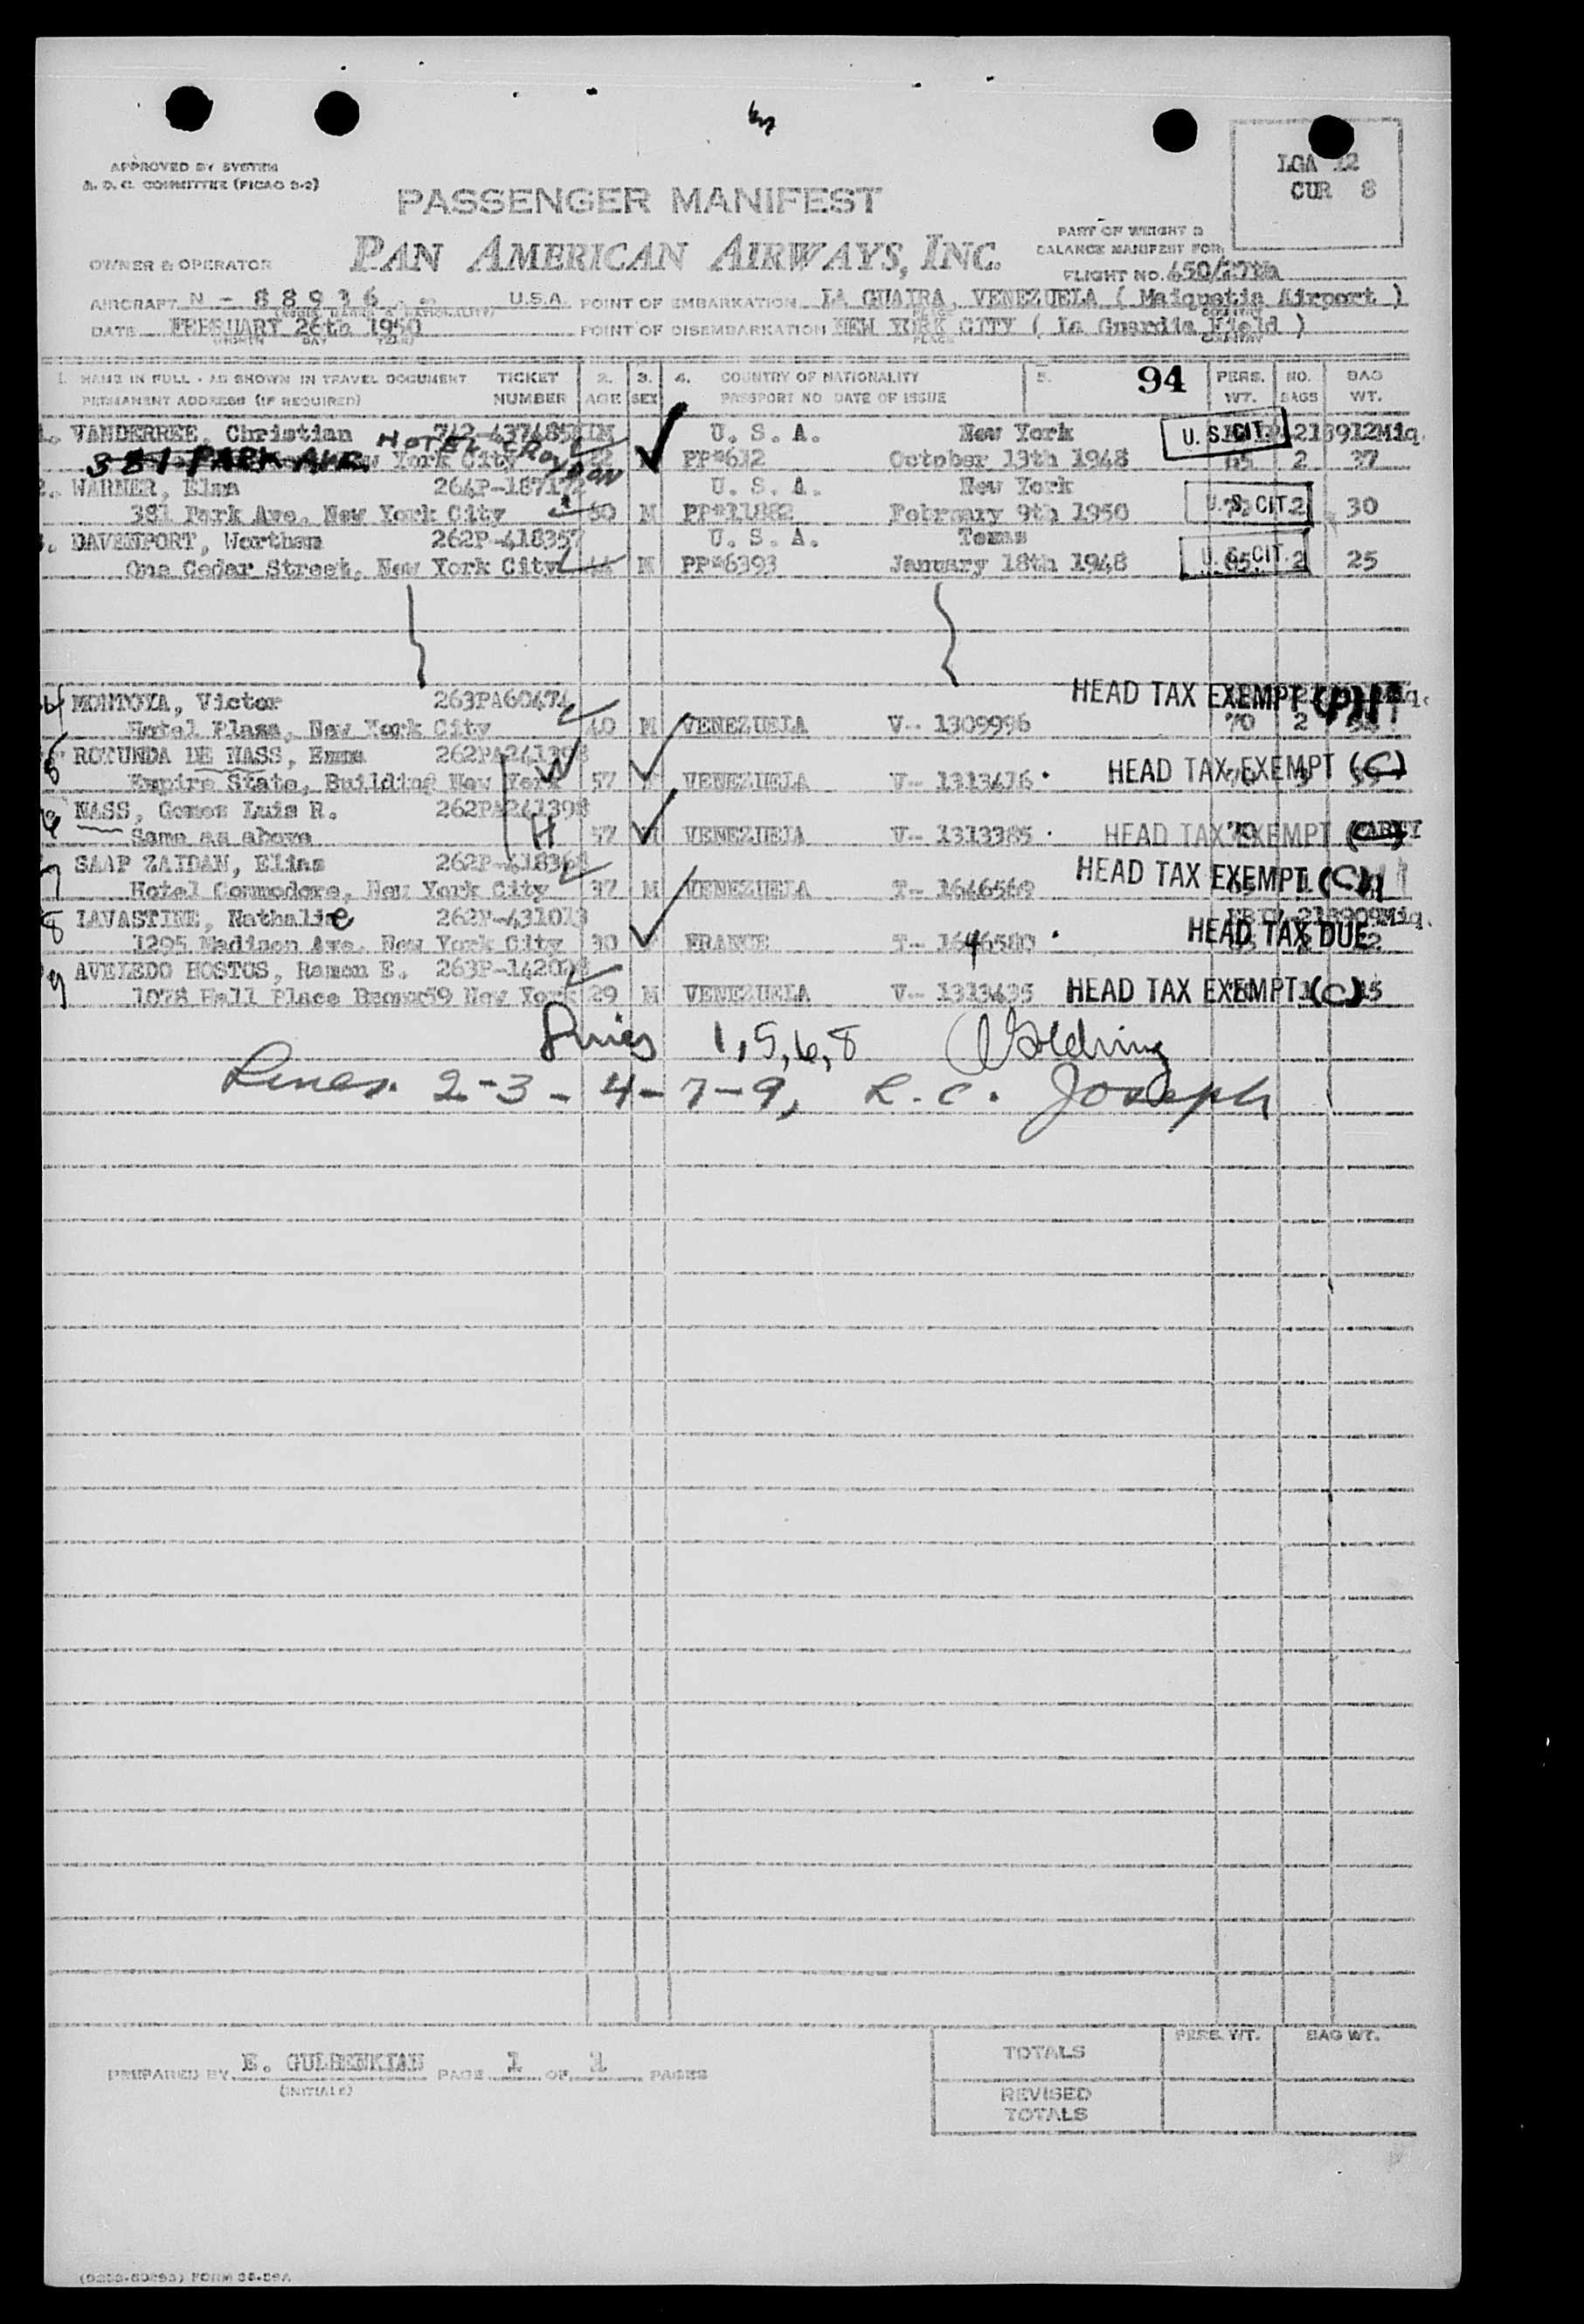 APPROVED BY SYSTEM
A. O. C. COMMITTEE (FICAO 3-2)
LGA 12
CUR 8
PASSENGER MANIFEST
PAN AMERICAN AIRWAYS, INC.
PART OF WEIGHT &
BALANCE MANIFEST FOR
OWNER & OPERATOR
FLIGHT NO. 450/27th
AIRCRAFT N - 88936 U.S.A. POINT OF EMBARKATION LA GUAIRA, VENEZUELA ( Maiquetia Airport )
DATE FEBRUARY 26th 1950 POINT OF DISEMBARKATION NEW YORK CITY ( La Guardia Field )
(MONTH DAY YEAR) PLACE COUNTRY
1. NAME IN FULL - AS SHOWN IN TRAVEL DOCUMENT TICKET 2. 3. 4. COUNTRY OF NATIONALITY 5. 94 PERS. NO. BAG
PERMANENT ADDRESS (IF REQUIRED) NUMBER AGE SEX PASSPORT NO DATE OF ISSUE WT. BAGS WT.
1. VANDERREE, Christian 742-437485 U. S. A. New York U. S. CIT. 213912Miq.
HOTEL CROYDON
381 PARK AVE. New York City PP#612 October 13th 1948 65 2 37
2. WARNER, Elam 264P-187172 U. S. A. New York
381 Park Ave. New York City 50 M PP#11882 February 9th 1950 U. S. CIT. 2 30
3. DAVENPORT, Wortham 262P-418357 U. S. A. Texas
One Cedar Street, New York City M PP#6393 January 18th 1948 U. S. CIT. 2 25
4 MONTOYA, Victor 263PA60474 HEAD TAX EXEMPT (P)
Hotel Plaza, New York City 40 M VENEZUELA V- 1309996 70 2
5 ROTUNDA DE NASS, Emma 262PA241398
Empire State, Building New York 57 VENEZUELA V- 1313416 HEAD TAX EXEMPT (C)
6 NASS, Gomes Luis R. 262PA241398
Same as above H 57 M VENEZUELA V- 1313385 HEAD TAX EXEMPT
7 SAAP ZAIDAN, Elias 262P-418368 HEAD TAX EXEMPT (C)
Hotel Commodore, New York City 37 M VENEZUELA T- 1646569
8 LAVASTINE, Nathalie 262P-431013 213909Miq.
1295 Madison Ave. New York City 30 FRANCE T- 1646580 HEAD TAX DUE
9 AVELEDO HOSTOS, Ramon E. 263P-142098
1078 Hall Place Bronx59 New York 29 M VENEZUELA V- 1313435 HEAD TAX EXEMPT (C) 15
Lines 1, 5, 6, 8 Golding
Lines. 2-3-4-7-9, L. C. Joseph
PERS. WT. BAG WT.
TOTALS
PREPARED BY E. GULBENKIAN PAGE 1 OF 1 PAGES
(INITIALS)
REVISED
TOTALS